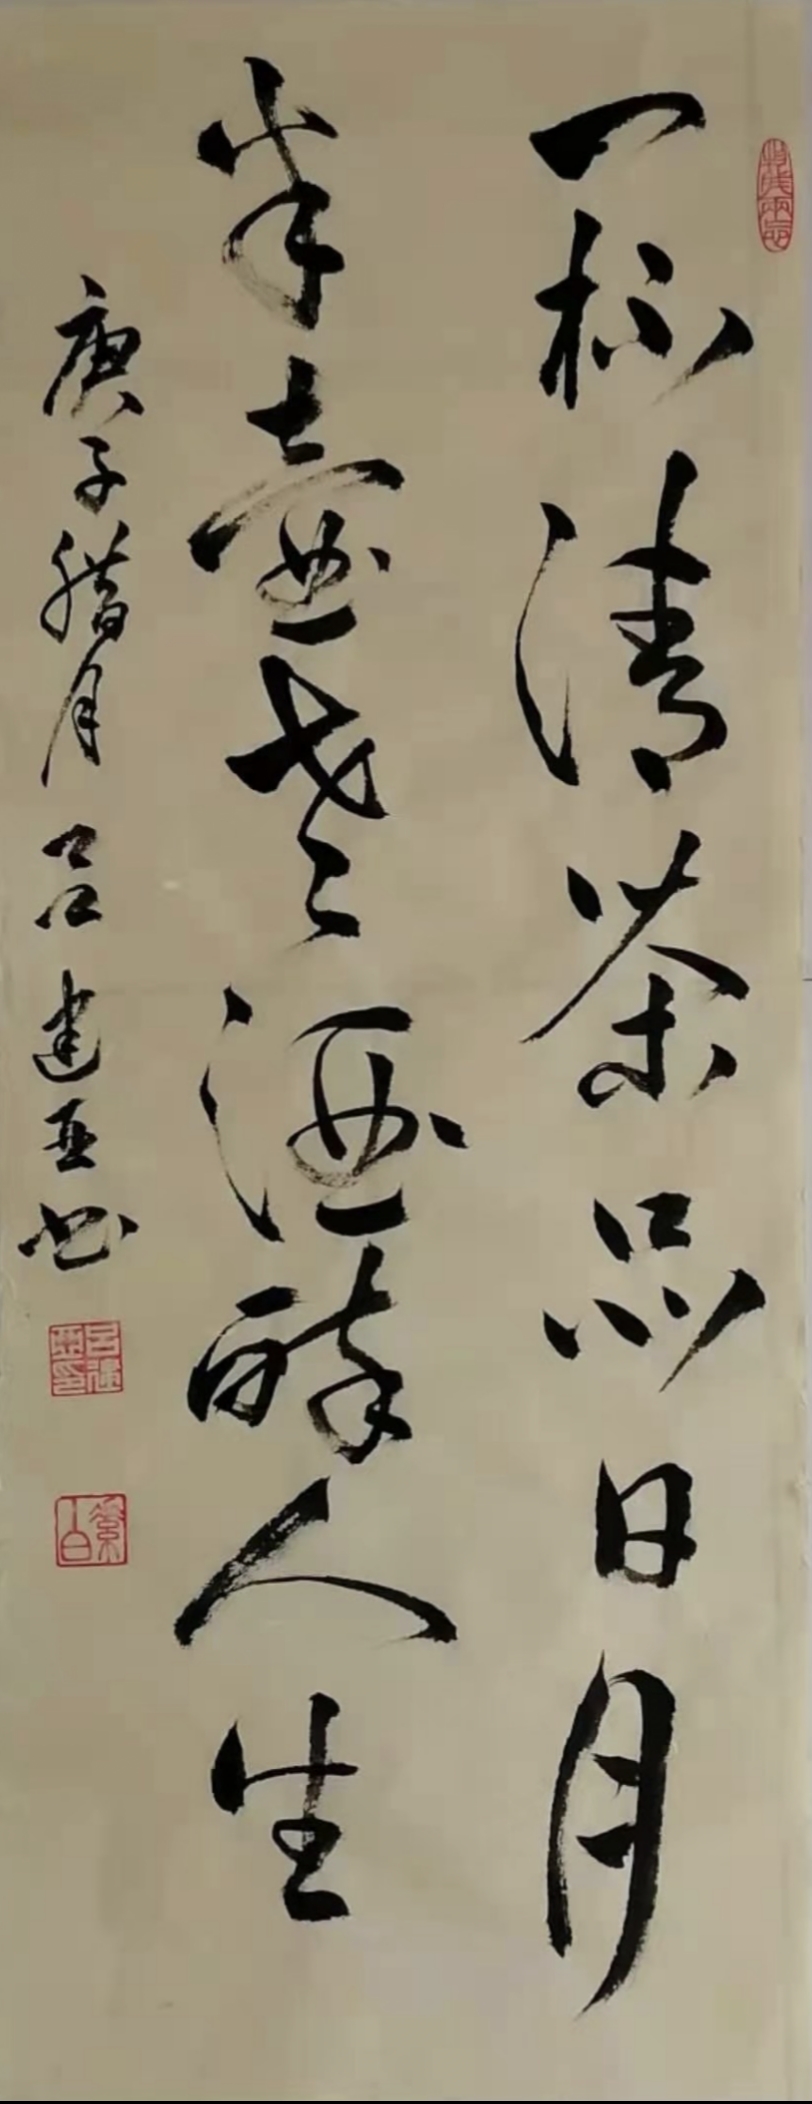 一杯清茶品日月
半壶老酒醉人生
庚子腊月吕建亚书